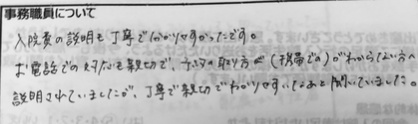 事務職員について
入院費の説明も丁寧でわかりやすかったです。
お電話での対応も親切で、テレビの取り方(携帯での)がわからない方へ
説明されていましたが、丁寧で親切でわかりやすいなぁと聞いていました。